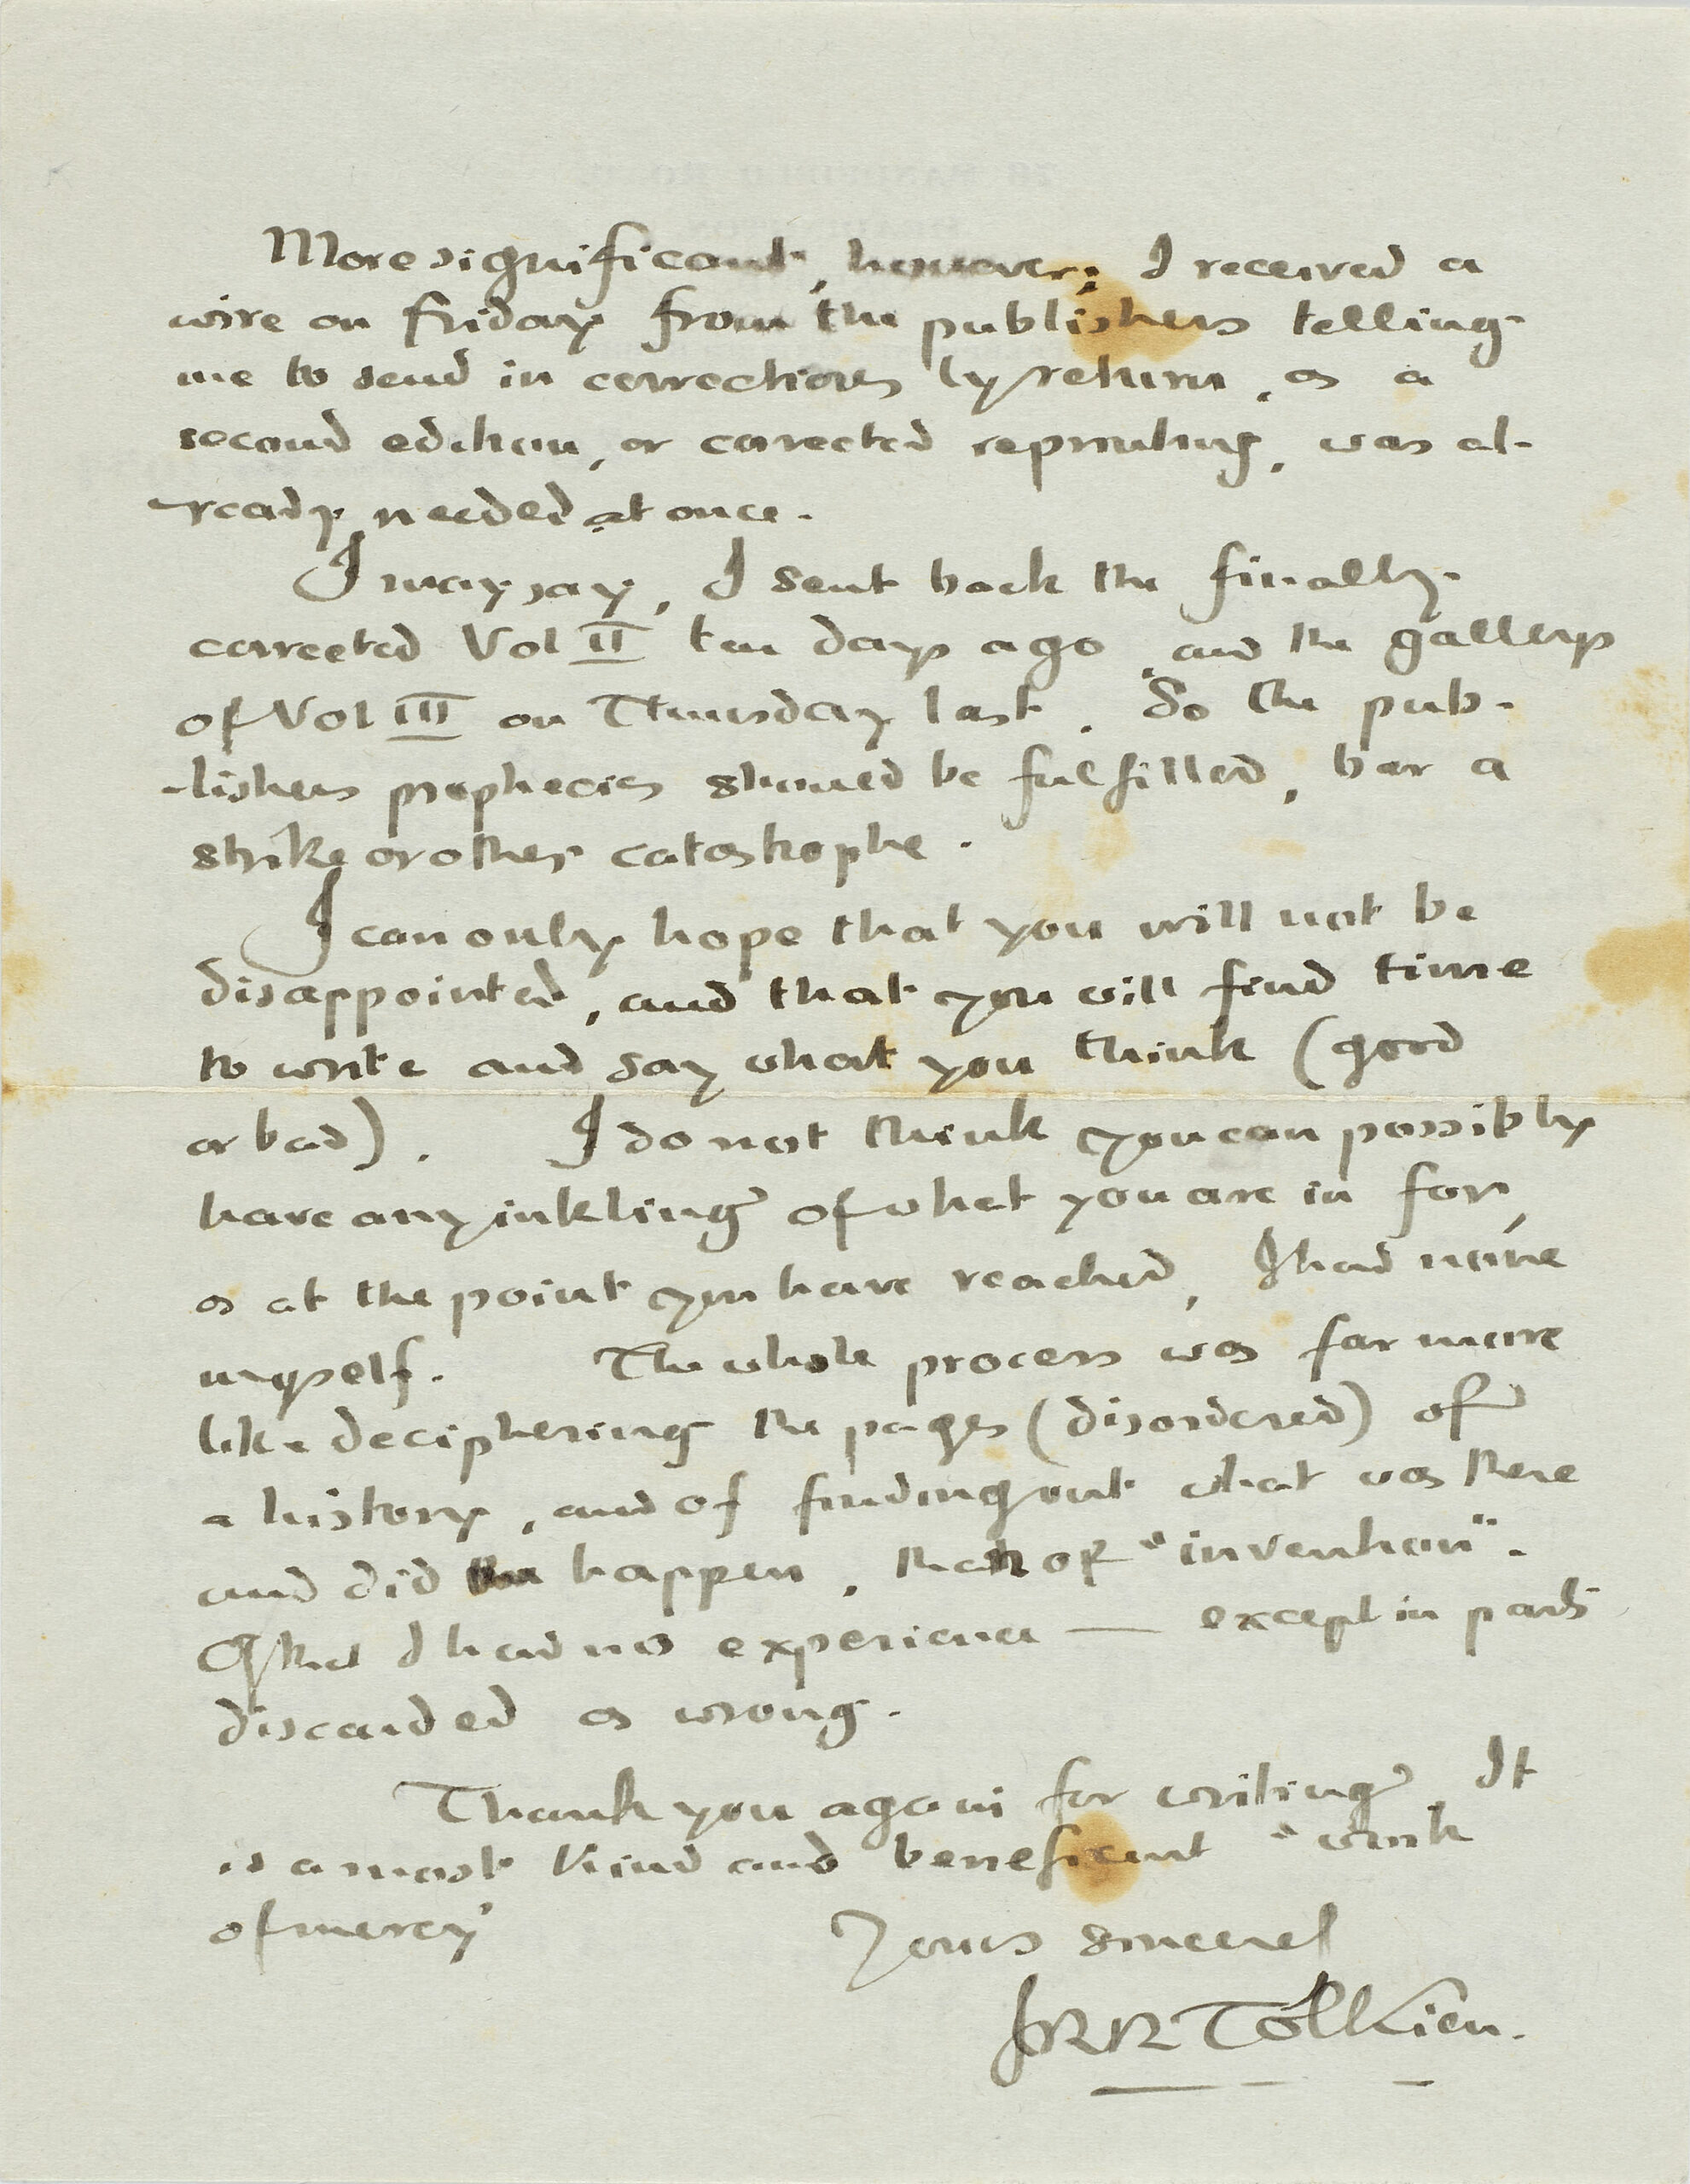 More significant, however, I received a
wire on Friday from the publishers telling
me to send in corrections by return, as a
second edition, or corrected reprinting, was al-
-ready needed at once.
I may say, I sent back the finally
corrected Vol II ten days ago, and the galleys
of Vol III on Thursday last. So the pub-
-lishers prophecies should be fulfilled, bar a
strike or other catastrophe.
I can only hope that you will not be
disappointed, and that you will find time
to write and say what you think (good
or bad). I do not think you can possibly
have any inkling of what you are in for,
as at the point you have reached, I had none
myself. The whole process was far more
like deciphering the pages (disordered) of
a history, and of finding out what was there
and did happen, than of "invention".
Of that I had no experience — except in parts
discarded as wrong.
Thank you again for writing. It
is a most kind and beneficent "work
of mercy"
Yours sincerel
JRR Tolkien.